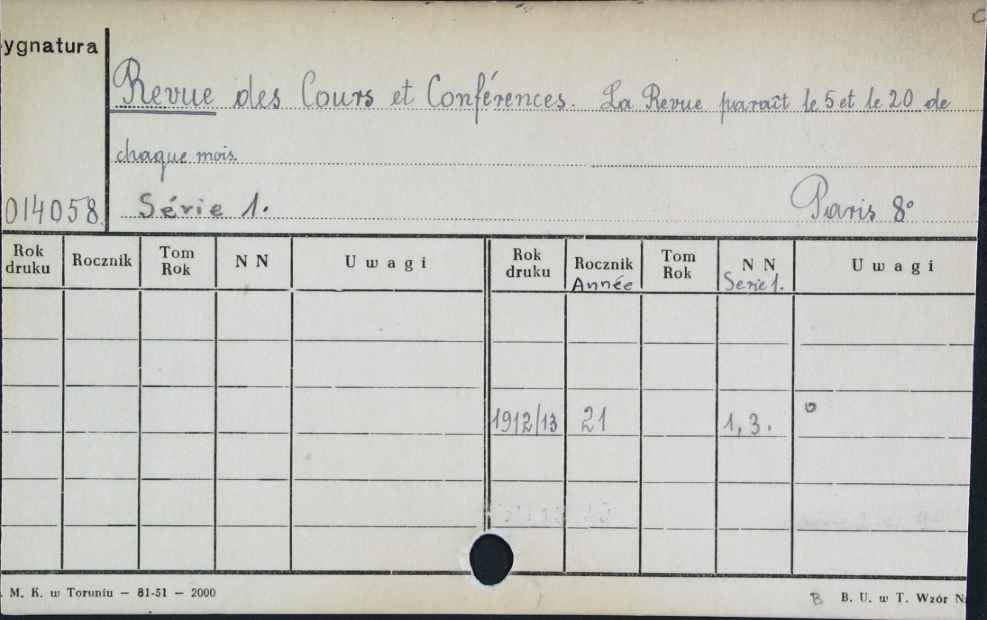 ygnatura
Revue des Cours et Conférences. La Revue paraît le 5 et le 20 de
chaque mois.
014058. Série 1. Paris 8°
Rok druku Rocznik Tom Rok NN Uwagi Rok druku Rocznik Année Tom Rok NN Serie 1. Uwagi
1912/13 21 1, 3.
. M. K. w Toruniu — 81-51 — 2000 B B. U. w T. Wzór N